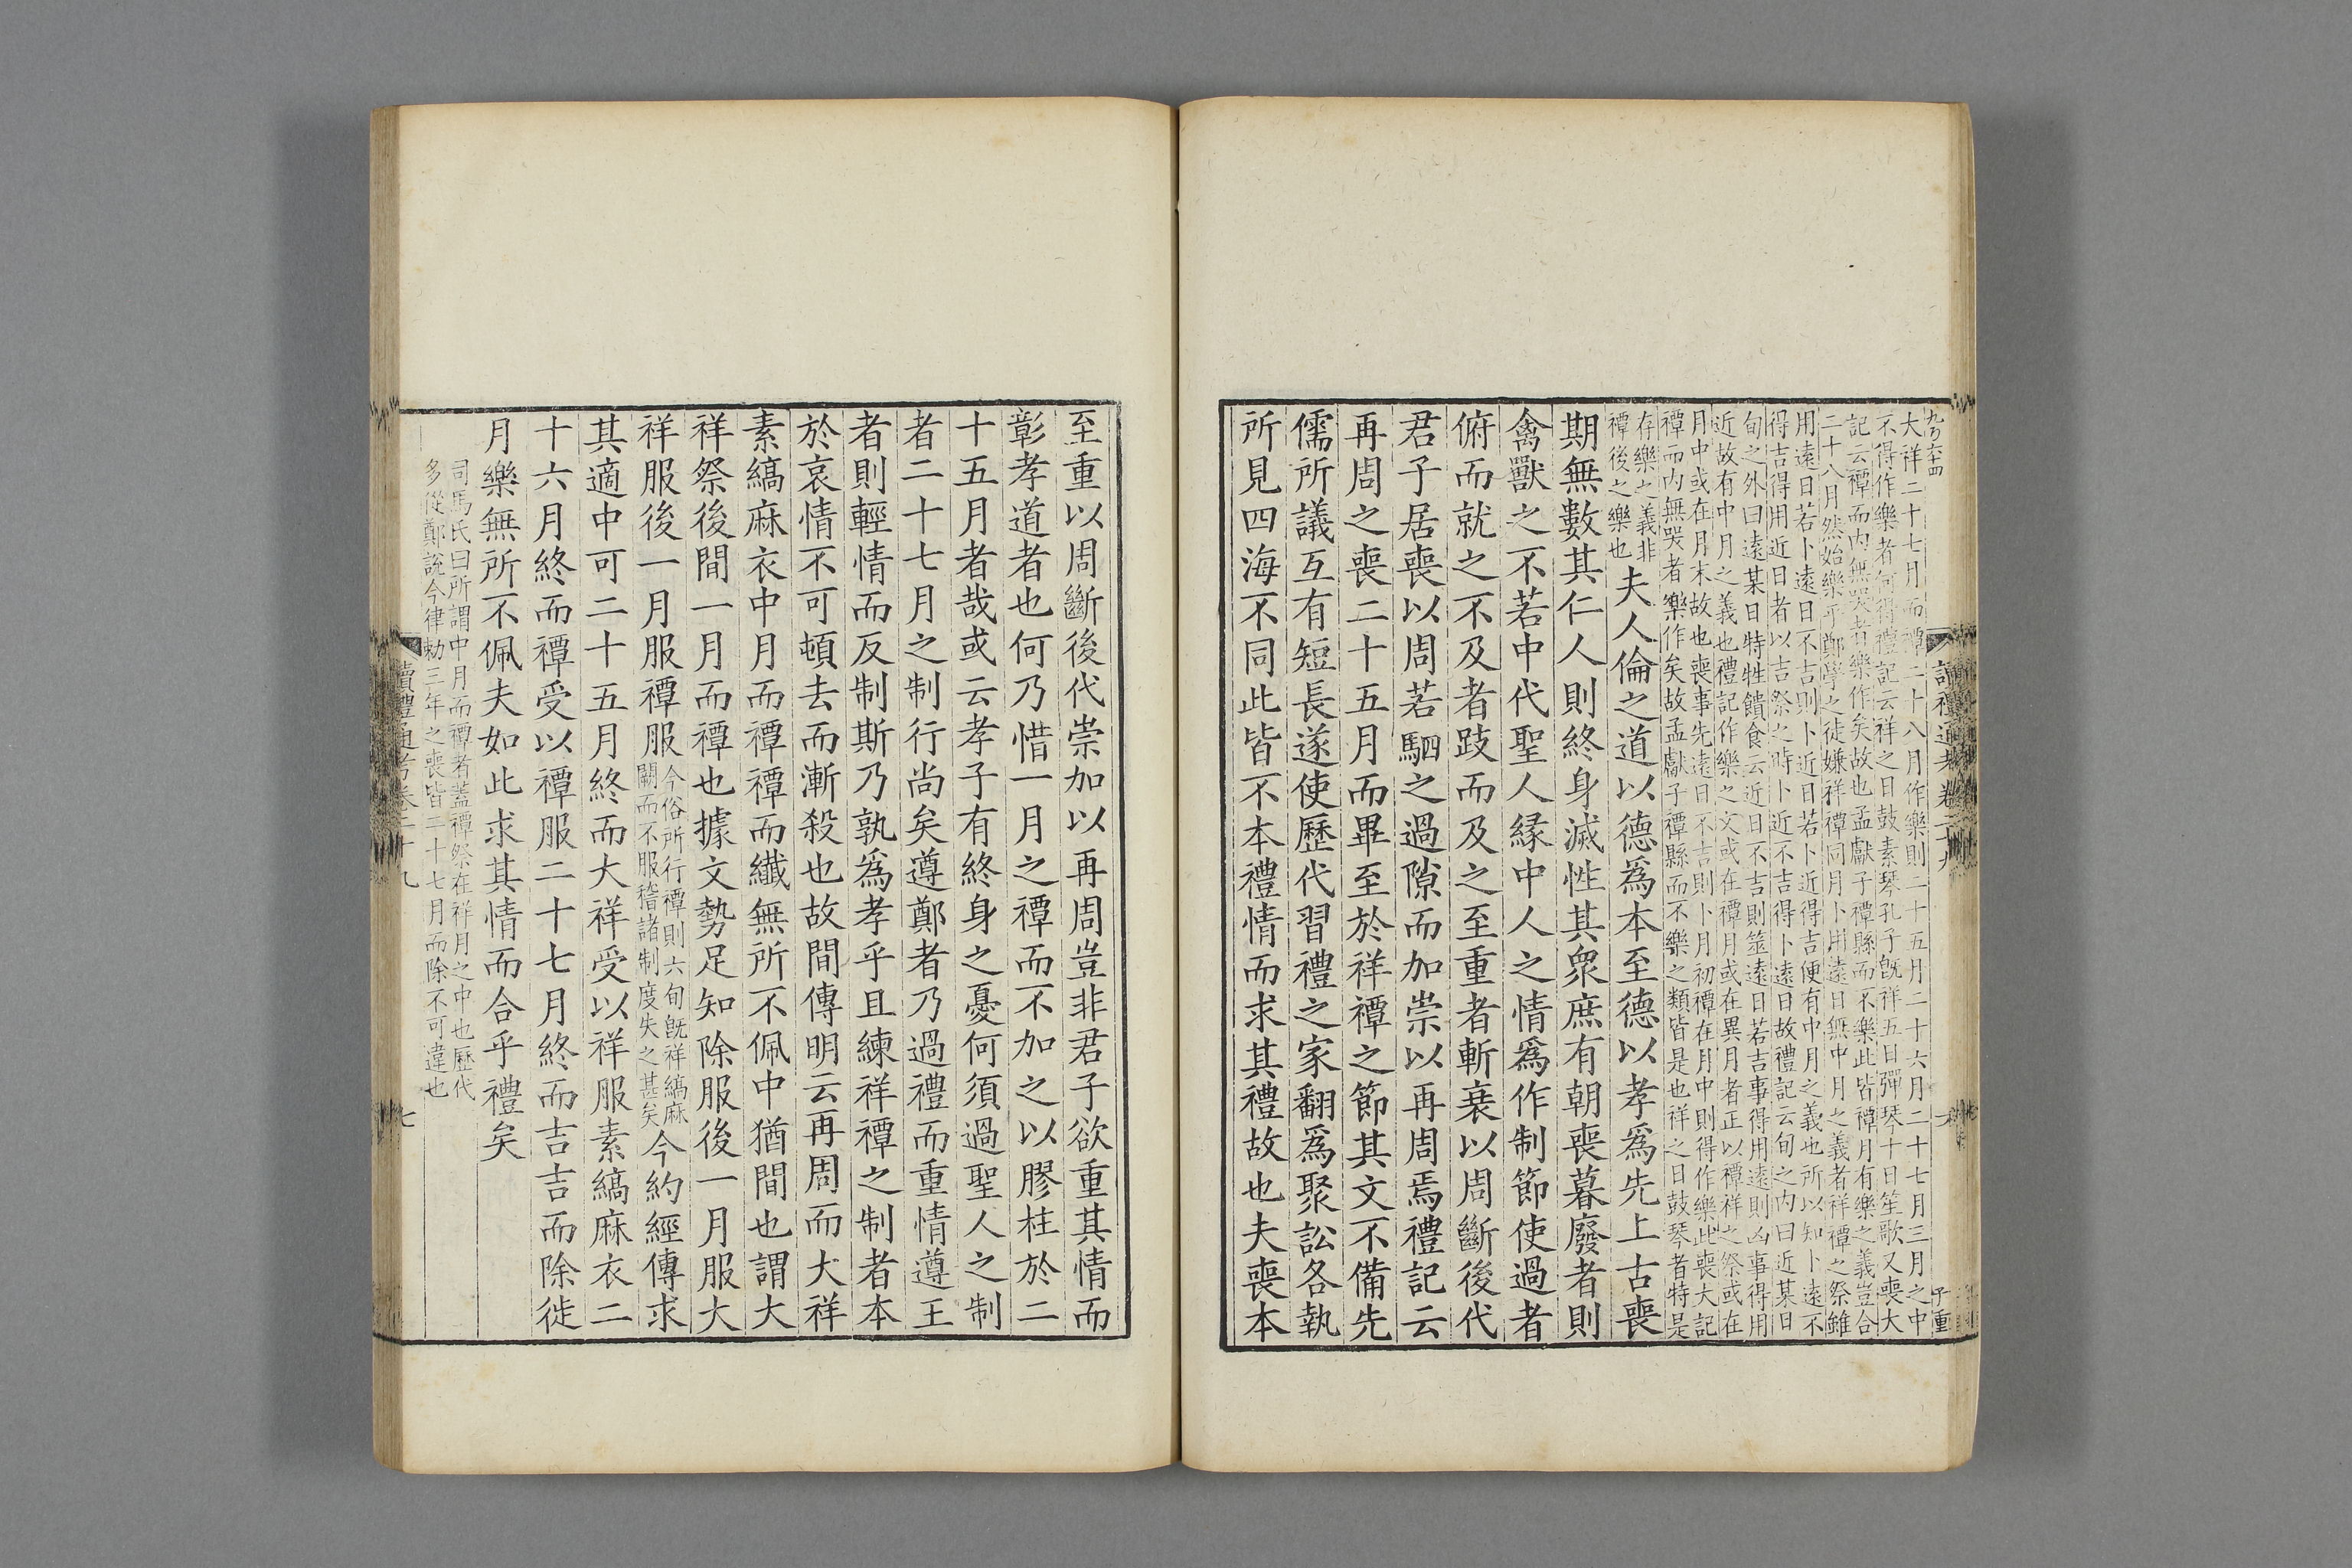 大祥二十七月而禫二十八月作樂則二十五月二十六月二十七月三月之中
不得作樂者何得禮記云祥之日鼓素琴孔子旣祥五日彈琴十日笙歌又喪大
記云禫而內無哭者樂作矣故也孟獻子禫縣而不樂此皆禫月有樂之義豈合
二十八月然始樂乎鄭學之徒嫌祥禫同月卜用遠日無中月之義者祥禫之祭雖
用遠日若卜遠日不吉則卜近日若卜近得吉便有中月之義也所以知卜遠不
得吉得用近日者以吉祭之時卜近不吉得卜遠日故禮記云旬之內曰近某日
旬之外曰遠某日特牲饋食云近日不吉則筮遠日若吉事得用遠則凶事得用
近故有中月之義也禮記作樂之文或在禫月或在異月者正以禫祥之祭或在
月中或在月末故也喪事先遠日不吉則卜月初禫在月中則得作樂此喪大記
禫而內無哭者樂作矣故孟獻子禫縣而不樂之類皆是也祥之日鼓琴者特是
存樂之義非
禫後之樂也
夫人倫之道以德爲本至德以孝爲先上古喪
期無數其仁人則終身滅性其衆庶有朝喪暮廢者則
禽獸之不若中代聖人緣中人之情爲作制節使過者
俯而就之不及者跂而及之至重者斬衰以周斷後代
君子居喪以周若駟之過隙而加崇以再周焉禮記云
再周之喪二十五月而畢至於祥禫之節其文不備先
儒所議互有短長遂使歷代習禮之家翻爲聚訟各執
所見四海不同此皆不本禮情而求其禮故也夫喪本
至重以周斷後代崇加以再周豈非君子欲重其情而
彰孝道者也何乃惜一月之禫而不加之以膠柱於二
十五月者哉或云孝子有終身之憂何須過聖人之制
者二十七月之制行尚矣遵鄭者乃過禮而重情遵王
者則輕情而反制斯乃孰爲孝乎且練祥禫之制者本
於哀情不可頓去而漸殺也故間傳明云再周而大祥
素縞麻衣中月而禫禫而纖無所不佩中猶間也謂大
祥祭後間一月而禫也據文勢足知除服後一月服大
祥服後一月服禫服
今俗所行禫則六旬旣祥縞麻
闕而不服稽諸制度失之甚矣
今約經傳求
其適中可二十五月終而大祥受以祥服素縞麻衣二
十六月終而禫受以禫服二十七月終而吉吉而除徙
月樂無所不佩夫如此求其情而合乎禮矣
司馬氏曰所謂中月而禫者蓋禫祭在祥月之中也歷代
多從鄭說今律勅三年之喪皆二十七月而除不可違也
讀禮通考卷二十九
七